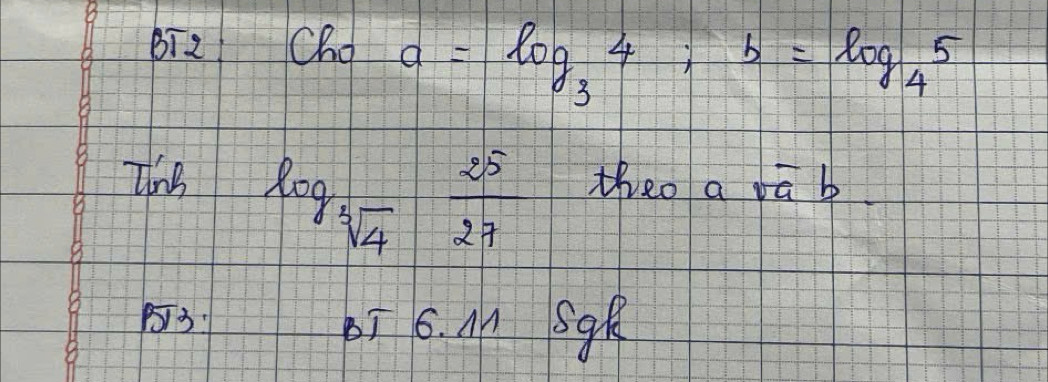 BT2: Cho a = log₃ 4 ; b = log₄ 5
Tính log_∛4 25/27 theo a và b.
BT3: BT 6.11 Sgk